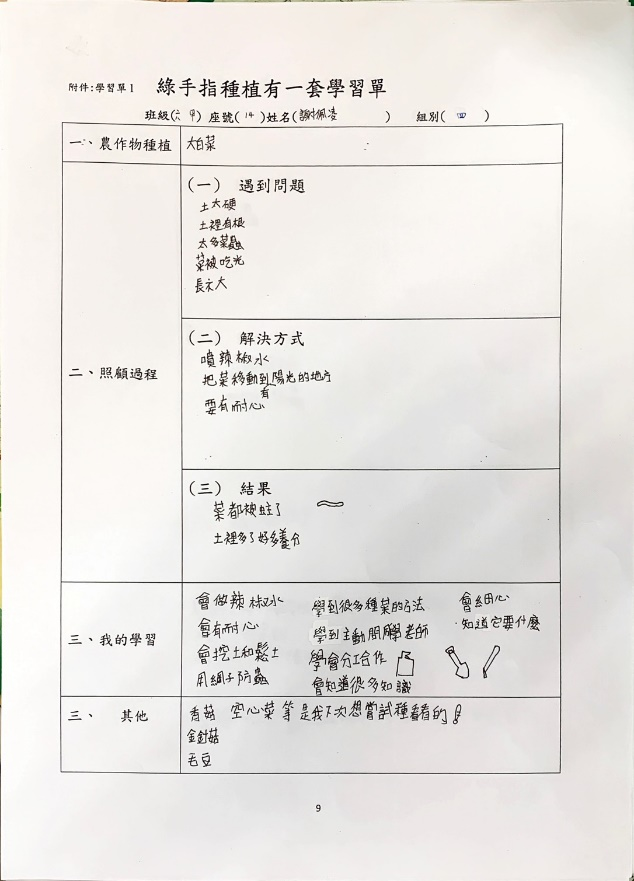 附件:學習單1 綠手指種植有一套學習單
班級(六甲) 座號(14)姓名(謝佩凌) 組別(四)
一、農作物種植 大白菜
二、照顧過程
(一) 遇到問題
土太硬
土裡有根
太多菜蟲
菜被吃光
長不大
(二) 解決方式
噴辣椒水
把菜移動到有陽光的地方
要有耐心
(三) 結果
菜都被蛀了
土裡多了好多養分
三、我的學習
會做辣椒水
會有耐心
會挖土和鬆土
用網子防蟲
學到很多種菜的方法
學到主動問老師
學會分工合作
會知道很多知識
會細心
知道它要什麼
三、 其他
香菇 空心菜 等是我下次想嘗試種看看的!
金針菇
毛豆
9